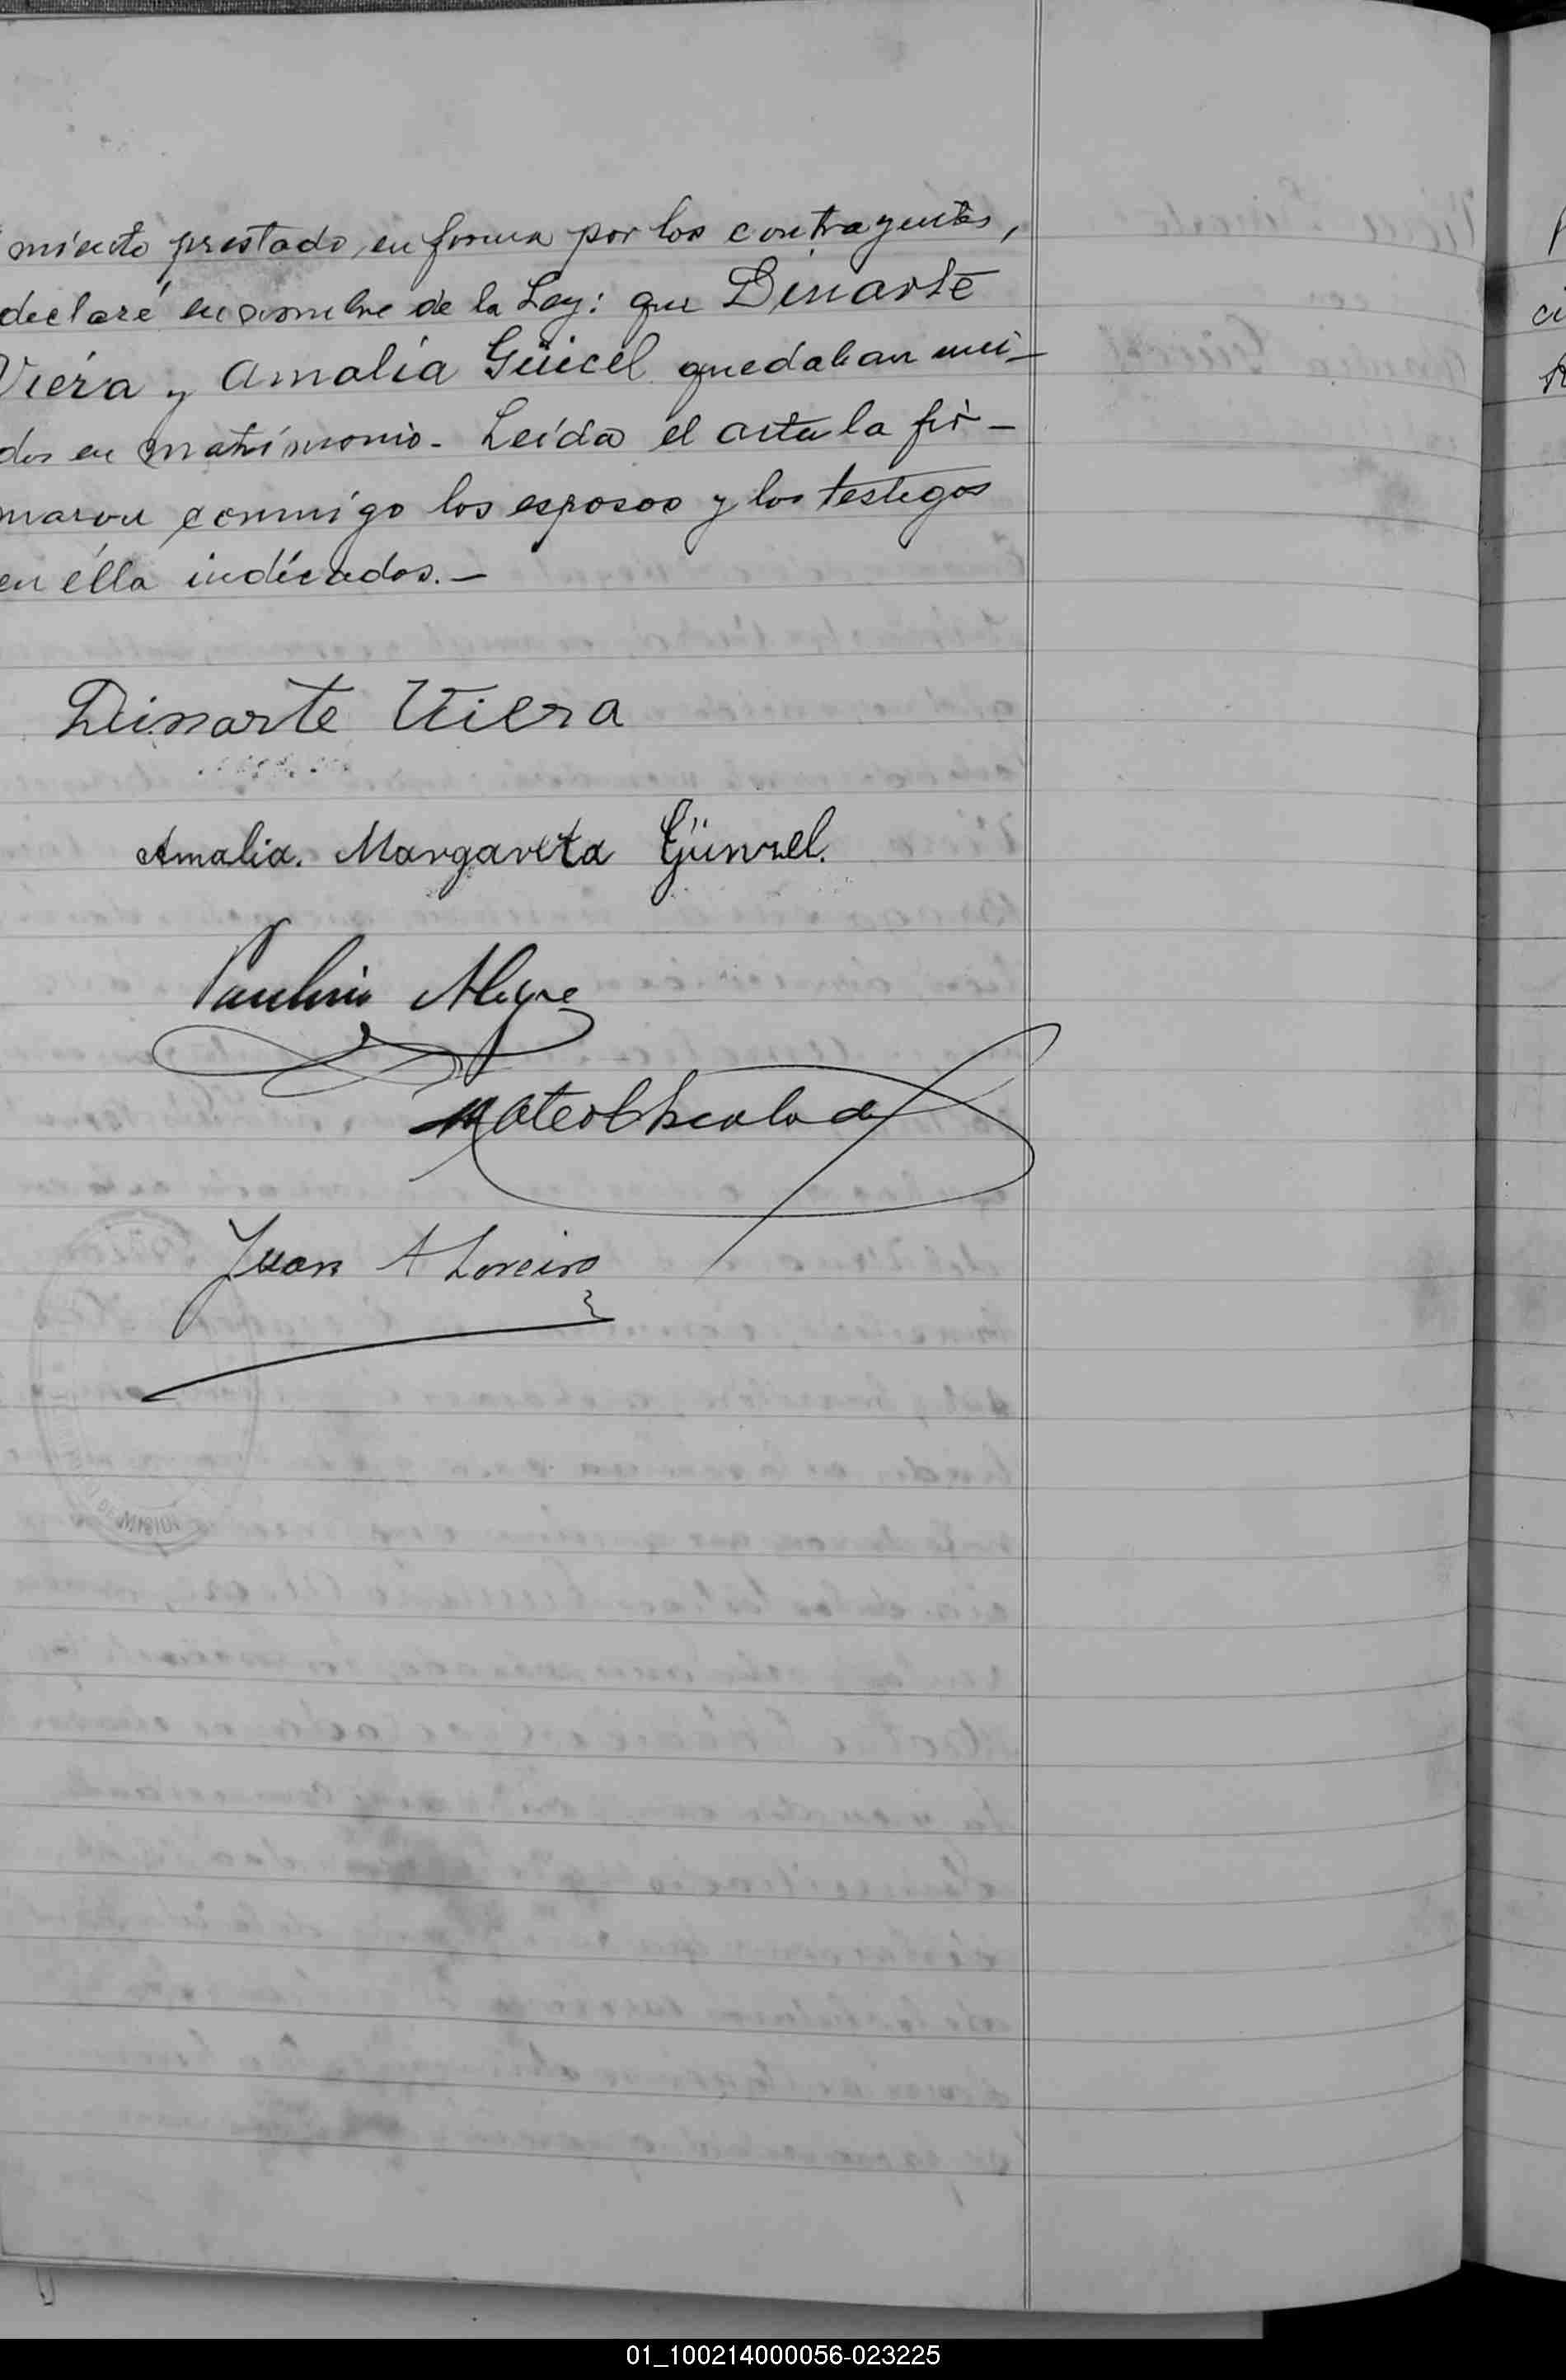 miento prestado en forma por los contrayentes,
declaré en nombre de la Ley: que Dinarte
Viera y Amalia Güicel quedaban uni-
dos en matrimonio. Leída el acta la fir-
maron conmigo los esposos y los testigos
en élla indicados.-
Dinarte Viera
Amalia. Margareta Günzel.
Paulino Alegre
Mateo
Juan A Loreiro
01_100214000056-023225